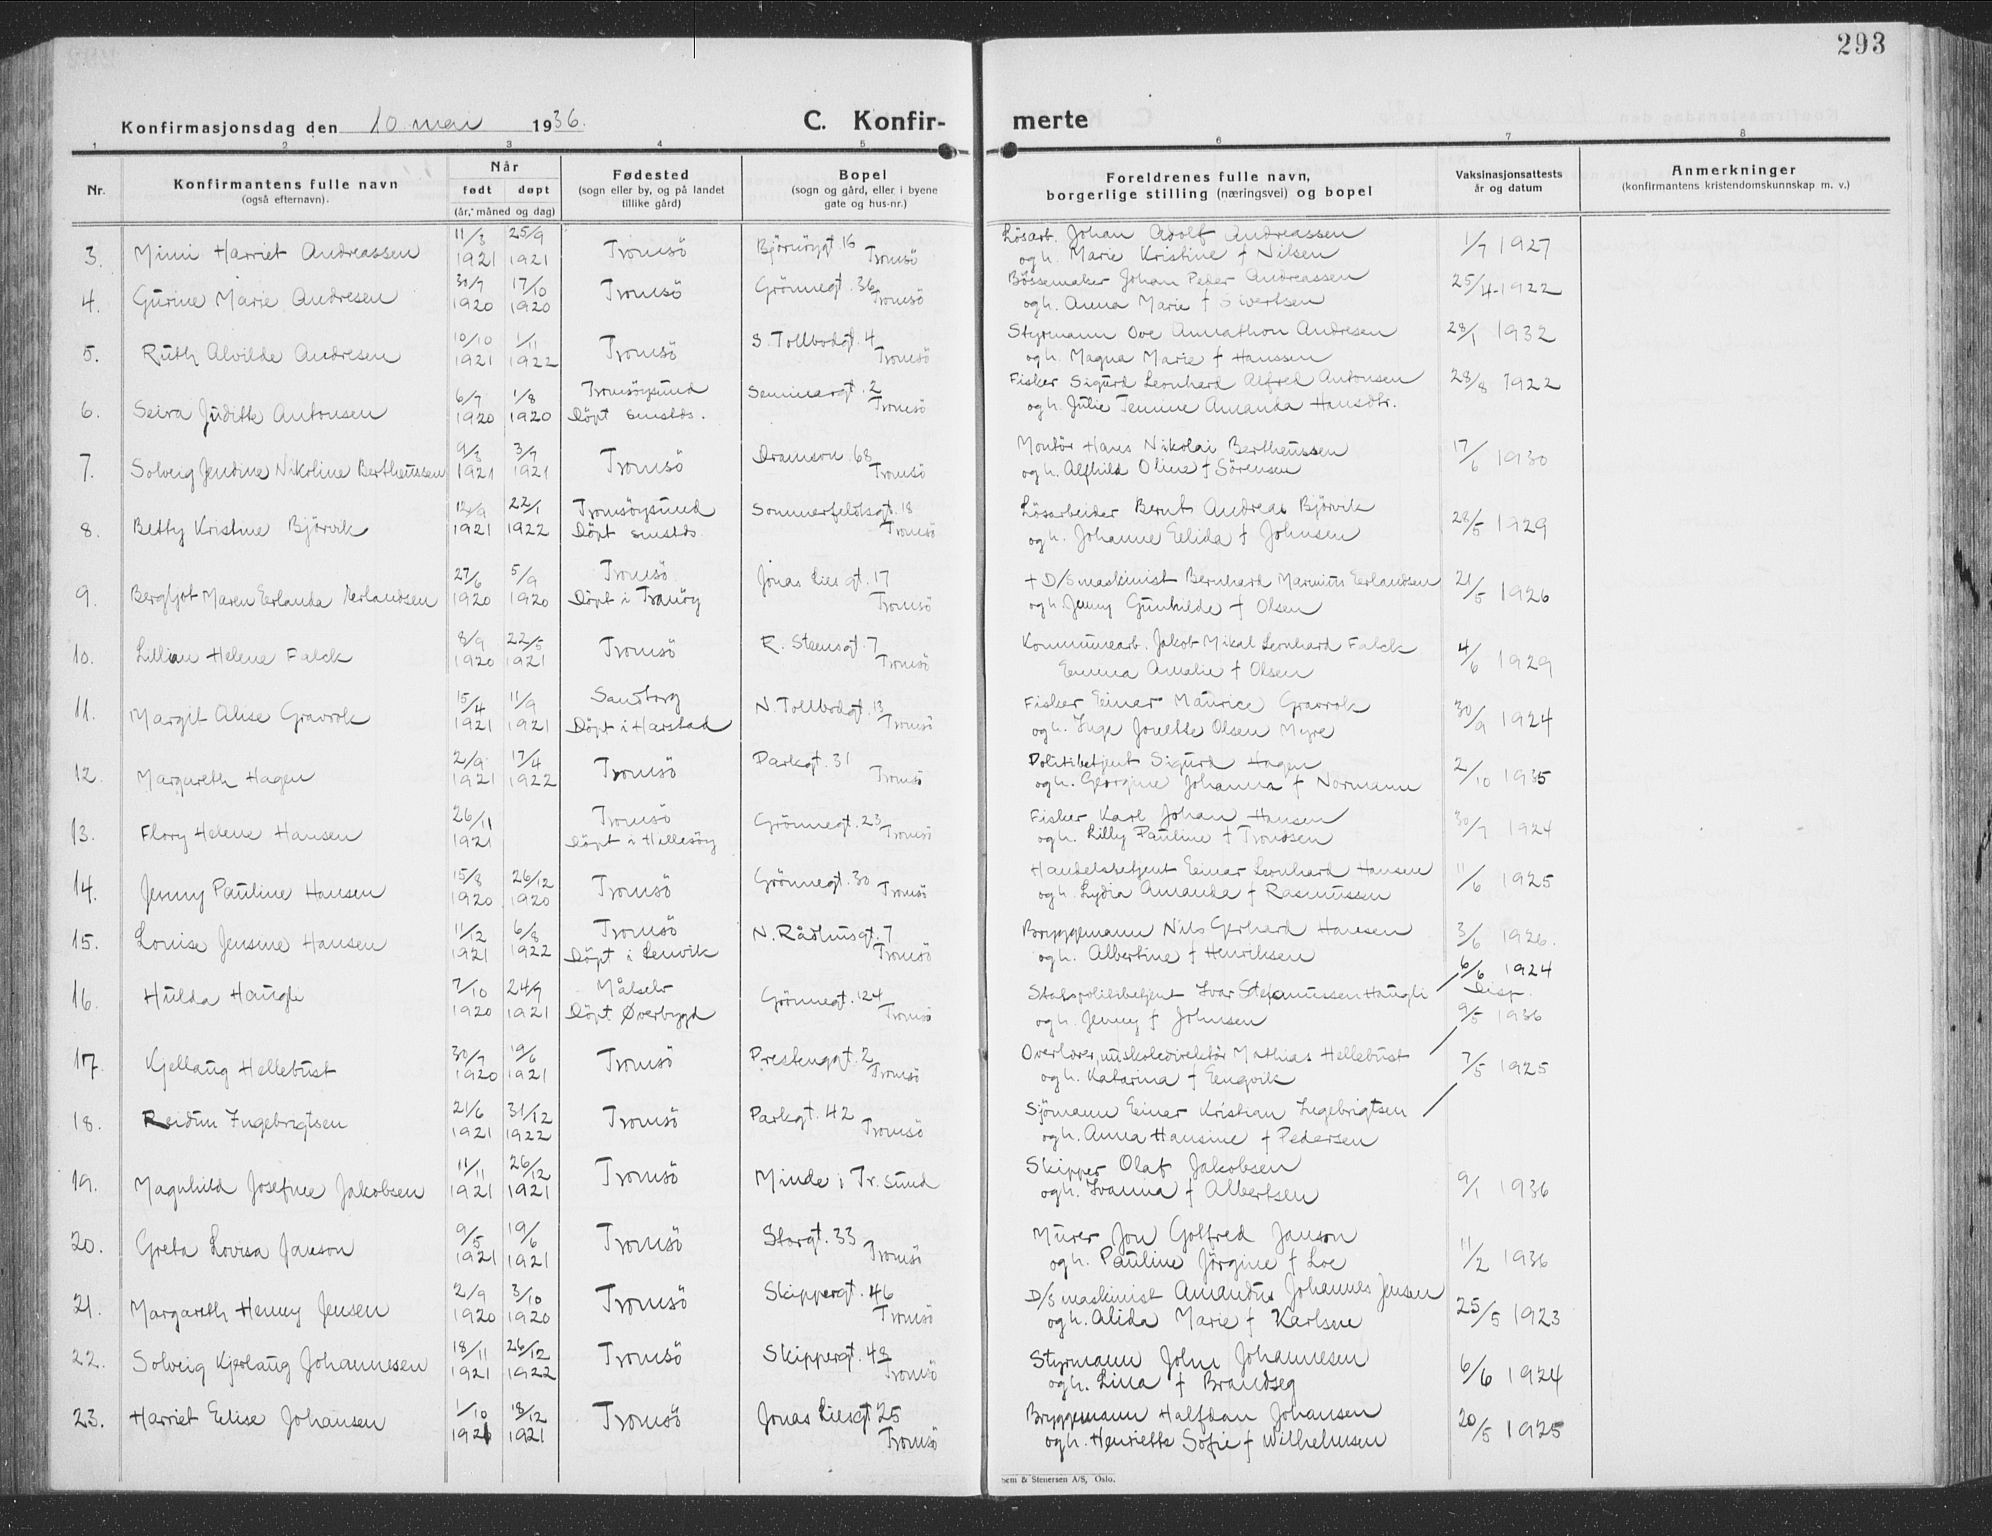 293
Konfirmasjonsdag den 10. mai 1936. C. Konfir- merte
1 2 3 4 5 6 7 8
Nr. Konfirmantens fulle navn (også efternavn). Når født døpt (år, måned og dag) Fødested (sogn eller by, og på landet tillike gård) Bopel (sogn og gård, eller i byene gate og hus-nr.) Foreldrenes fulle navn, borgerlige stilling (næringsvei) og bopel Vaksinasjonsattests år og datum Anmerkninger (konfirmantens kristendomskunnskap m. v.)
3. Mimi Harriet Andreassen 11/3 1921 25/9 1921 Tromsö Björnöygt. 16 Tromsö Lösarb. Johan Adolf Andreassen og h. Marie Kristine f Nilsen 1/7 1927
4. Gurine Marie Andresen 30/7 1920 17/10 1920 Tromsö Grönnegt. 36 Tromsö Bössemaker Johan Peder Andreassen og h. Anna Marie f Sivertsen 25/4 1922
5. Ruth Alvilde Andresen 10/10 1921 1/11 1922 Tromsö S. Tollbodgt. 4 Tromsö Styrmann Ove Annathon Andresen og h. Magna Marie f Hanssen 28/1 1932
6. Seira Juditte Antonsen 6/7 1920 1/8 1920 Tromsöysund Döpt smstds. Seminargt. 2 Tromsö Fisker Sigurd Leonhard Alfred Antonsen og h. Julie Jennine Amanda Hansdtr. 28/8 1922
7. Solveig Jendine Nikoline Bertheussen 9/3 1921 3/7 1921 Tromsö Dramsvn. 68 Tromsö Montör Hans Nikolai Bertheussen og h. Alfhild Oline f Sörensen 17/6 1930
8. Betty Kristine Björvik 12/9 1921 22/1 1922 Tromsöysund Döpt smstds. Sommerfeldtsgt. 18 Tromsö Lösarbeider Bernt Andreas Björvik og h. Johanne Elida f Johnsen 28/5 1929
9. Bergljot Maren Erlanda Erlandsen 27/6 1920 5/9 1920 Tromsö Döpt i Tranöy Jonas Lies gt. 17 Tromsö + D/S maskinist Bernhard Marinius Erlandsen og h. Jenny Gunhilde f Olsen 21/5 1926
10. Lillian Helene Falck 8/9 1920 22/5 1921 Tromsö R. Steensgt. 7 Tromsö Kommunearb. Jakob Mikal Leonhard Falck Emma Amalie f Olsen 4/6 1929
11. Margit Alise Gravrok 15/4 1921 11/9 1921 Sandtorg Döpt i Harstad N Tollbodgt. 13 Tromsö Fisker Einar Maurice Gravrok og h. Inga Jonette Olsen Myre 30/9 1924
12. Margareth Hagen 2/9 1921 17/4 1922 Tromsö Parkgt. 31 Tromsö Politibetjent Sigurd Hagen og h. Georgine Johanna f Normann 2/10 1935
13. Flory Helene Hansen 26/11 1921 Tromsö Döpt i Hillesöy Grönnegt. 23 Tromsö Fisker Karl Johan Hansen og h. Lilly Pauline f Trondsen 30/7 1924
14. Jenny Pauline Hansen 15/8 1920 26/12 1920 Tromsö Grönnegt. 30 Tromsö Handelsbetjent Einar Leonhard Hansen og h. Lydia Amanda f Rasmussen 11/6 1925
15. Louise Jensine Hansen 11/12 1921 6/8 1922 Tromsö Döpt i Lenvik N. Rådhusgt. 7 Tromsö Bryggemann Nils Gerhard Hansen og h. Albertine f Henriksen 3/6 1926.
16. Hulda Haugli 7/10 1920 24/7 1921 Målselv Döpt Øverbygd Grönnegt. 124 Tromsö Statspolitibetjent Ivar Stefanussen Haugli og h. Jenny f Johnsen 6/6 1924
17. Kjellaug Hellebust 30/7 1920 19/6 1921 Tromsö Prestenggt. 2 Tromsö Overlærer, Mathias Hellebust og h. Katarina f Engvik Disp. 9/5 1936
18. Reidun Ingebrigtsen 21/6 1921 31/12 1922 Tromsö Parkgt. 42 Tromsö Sjömann Einar Kristian Ingebrigtsen og h. Anna Hansine f Pedersen 7/5 1925
19. Magnhild Josefine Jakobsen 11/11 1921 26/12 1921 Tromsö Minde i Tr. sund Skipper Olaf Jakobsen og h. Ivanna f Albertsen 9/1 1936
20. Greta Lovisa Janson 9/5 1921 19/6 1921 Tromsö Storgt. 33 Tromsö Murer Jon Gotfred Janson og h. Pauline Jörgine f Loe 11/2 1936
21. Margareth Henny Jensen 2/9 1920 3/10 1920 Tromsö Skippergt. 46 Tromsö D/S maskinist Amandus Johannes Jensen og h. Alida Marie f Karlsne 25/5 1923
22. Solveig Kjerlaug Johannesen 18/11 1921 26/12 1922 Tromsö Skippergt. 48 Tromsö Styrmann John Johannesen og h. Lina f Brandseg 6/6 1924
23. Harriet Elise Johansen 1/10 1921 18/12 1921 Tromsö Jonas Liesgt 25 Tromsö Bryggemann Halfdan Johansen og h. Henriette Sofie f Wilhelmsen 20/5 1925
& Stenersen A/S, Oslo.